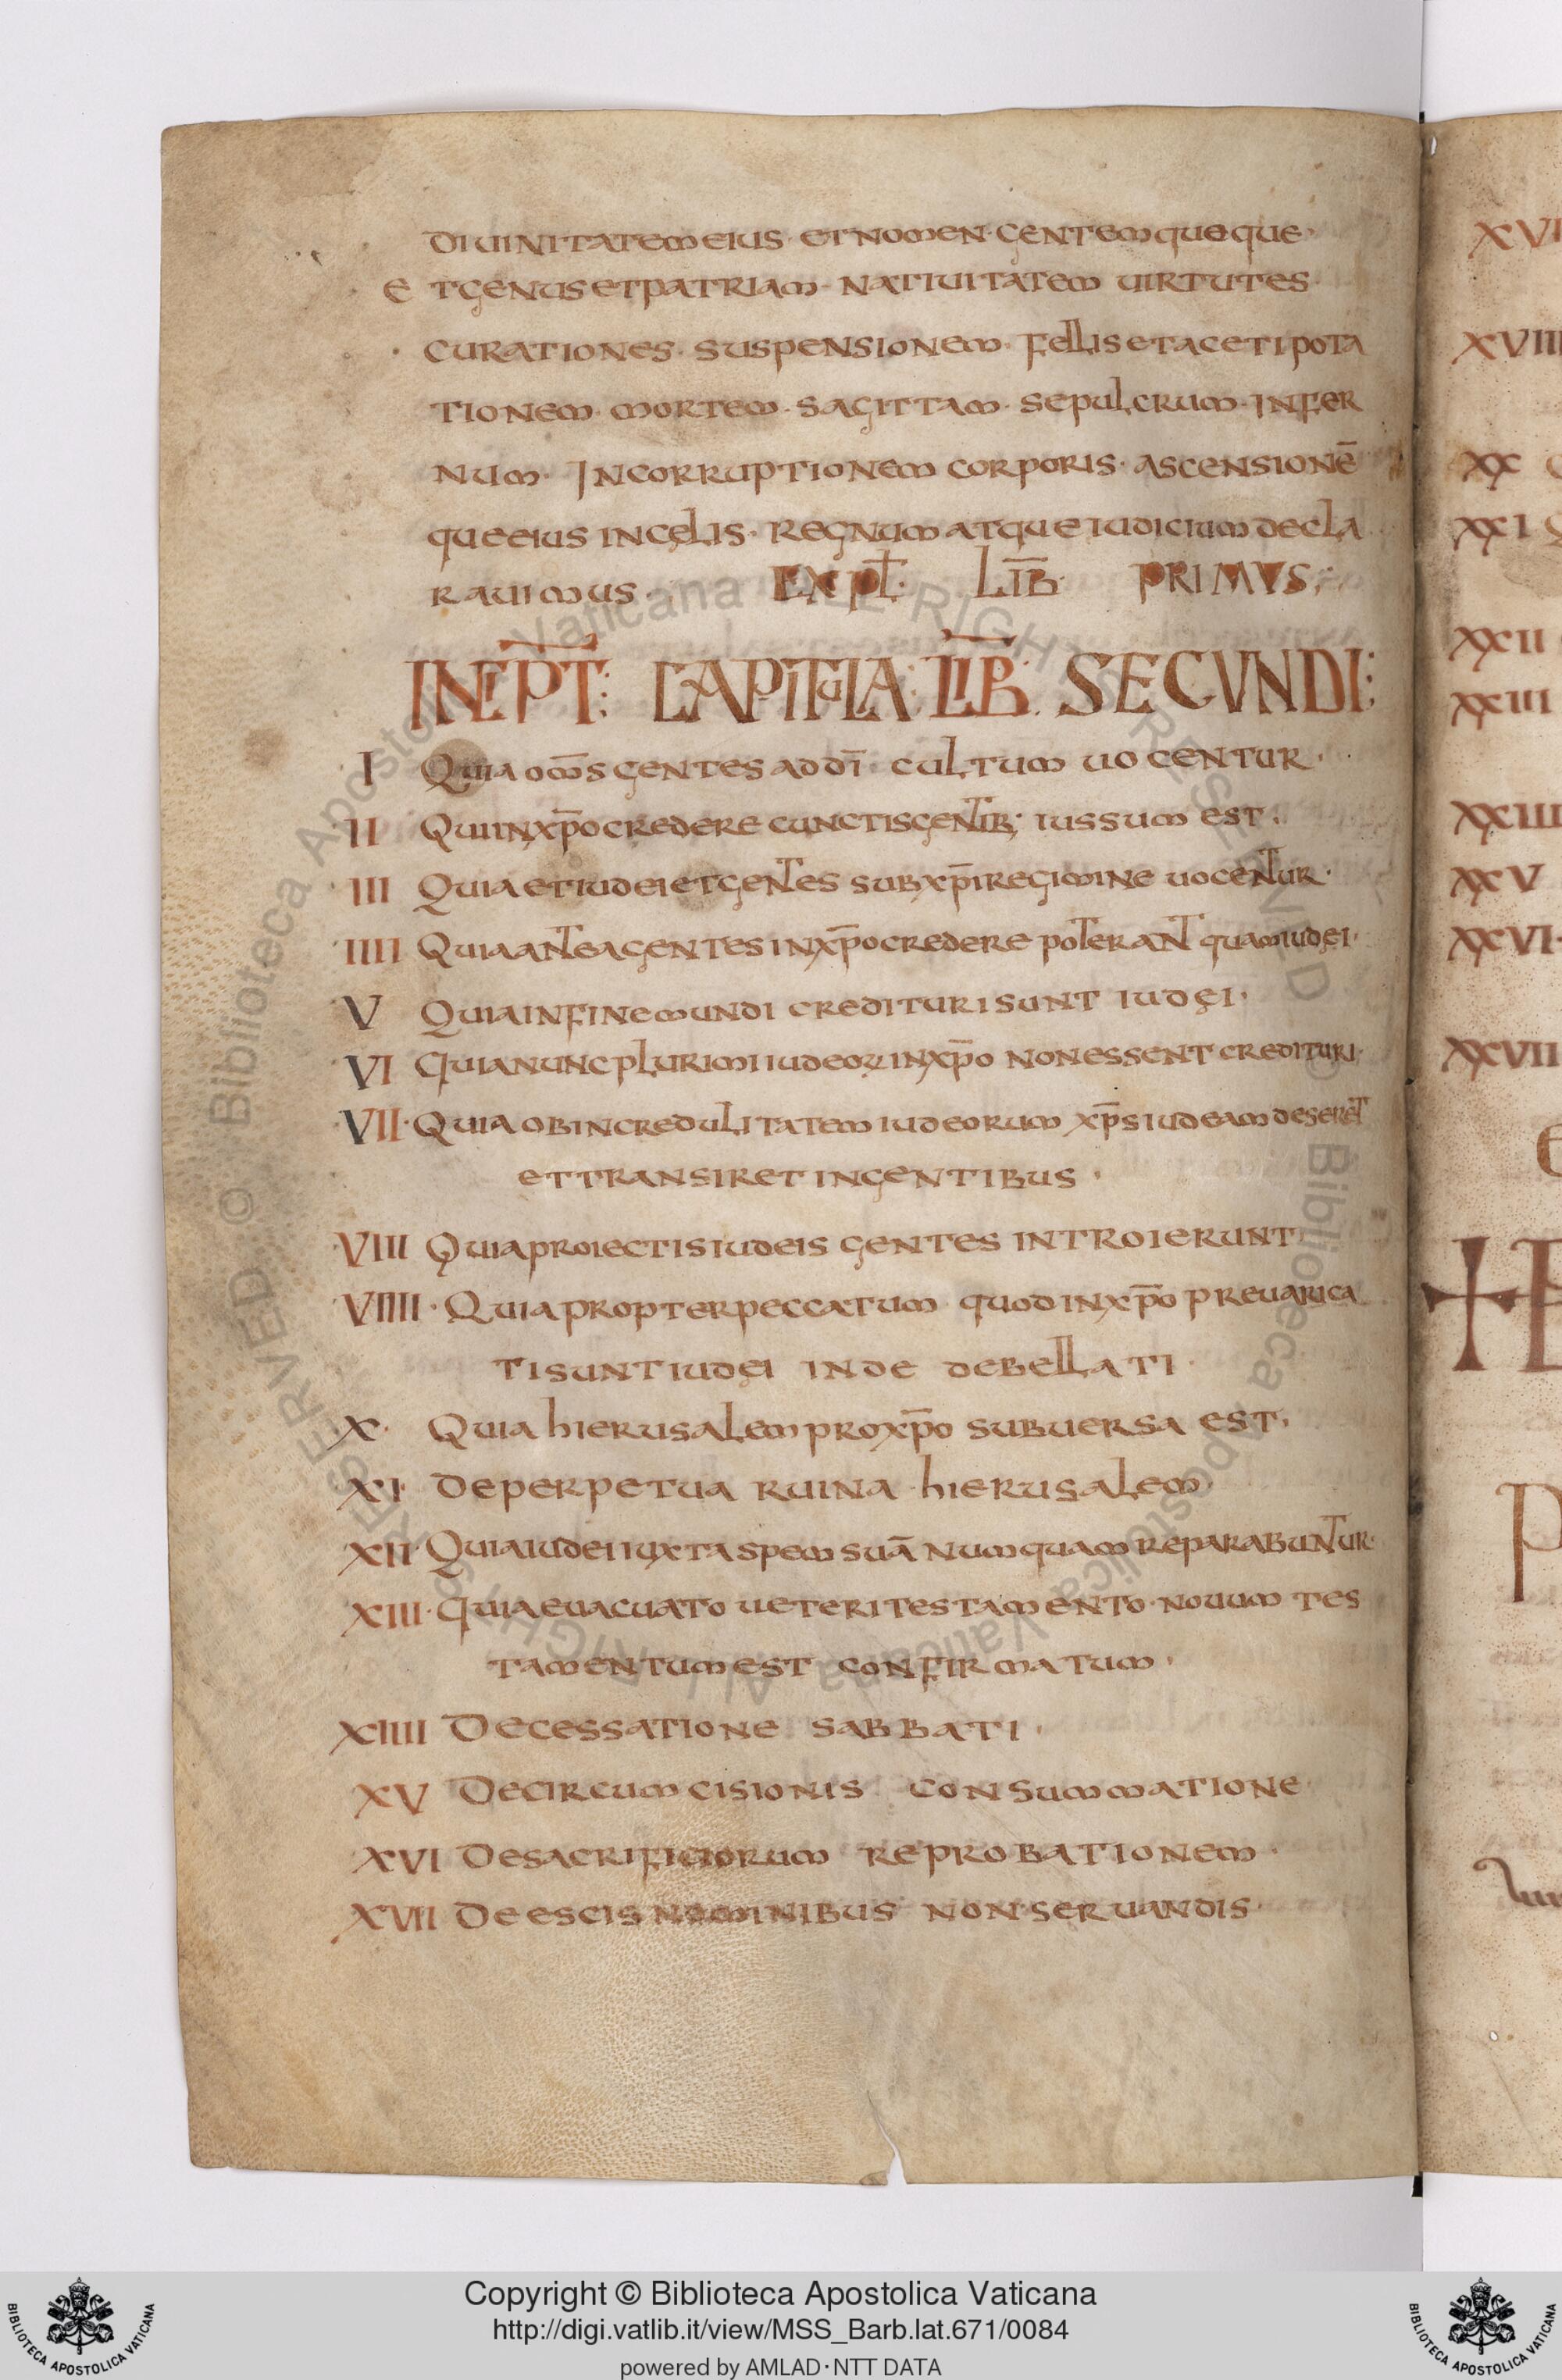 diuinitatem eius· et nomen· gentem quoque·
et genus et patriam· natiuitatem uirtutes·
curationes· suspensionem· fellis et aceti pota
tionem· mortem· sagittam· sepulcrum· infer
num· Incorruptionem corporis· ascensionē
que eius in cęlis· Regnum atque iudicium decla
rauimus· EXPŁ· LIB̄· PRIMVS;
INCP̄T: CAPITULA: LIB̄: SECVNDI:
I Quia om̄s gentes ad dī cultum uocentur·
II Qui in xp̄o credere cunctis gentib; iussum est·
III Quia et iudei et gentes sub xp̄i regimine uocentur·
IIII Quia antea gentes in xp̄o credere poterant quam iudęi·
V Quia in fine mundi credituri sunt iudęi·
VI Quia nunc plurimi iudeoꝝ in xp̄o non essent credituri·
VII· Quia ob incredulitatem iudeorum xp̄s iudeam desereret
et transiret in gentibus·
VIII Quia proiectis iudeis gentes introierunt
VIIII· Quia propter peccatum quod in xp̄o preuarica
ti sunt iudęi inde debellati·
X· Quia hierusalem pro xp̄o subuersa est·
XI· De perpetua ruina hierusalem·
XII· Quia iudei iuxta spem suā numquam reparabuntur·
XIII· Quia euacuato ueteri testamento· nouum tes
tamentum est confirmatum·
XIIII De cessatione sabbati·
XV De circumcisionis consummatione
XVI De sacrificiorum reprobationem·
XVII De escis nominibus non seruandis·
XVI
XVIII
XX
XXI
XXII
XXIII
XXIII
XXV
XXVI·
XXVII
Copyright © Biblioteca Apostolica Vaticana
http://digi.vatlib.it/view/MSS_Barb.lat.671/0084
powered by AMLAD·NTT DATA
BIBLIOTECA APOSTOLICA VATICANA
BIBLIOTECA APOSTOLICA VATICANA